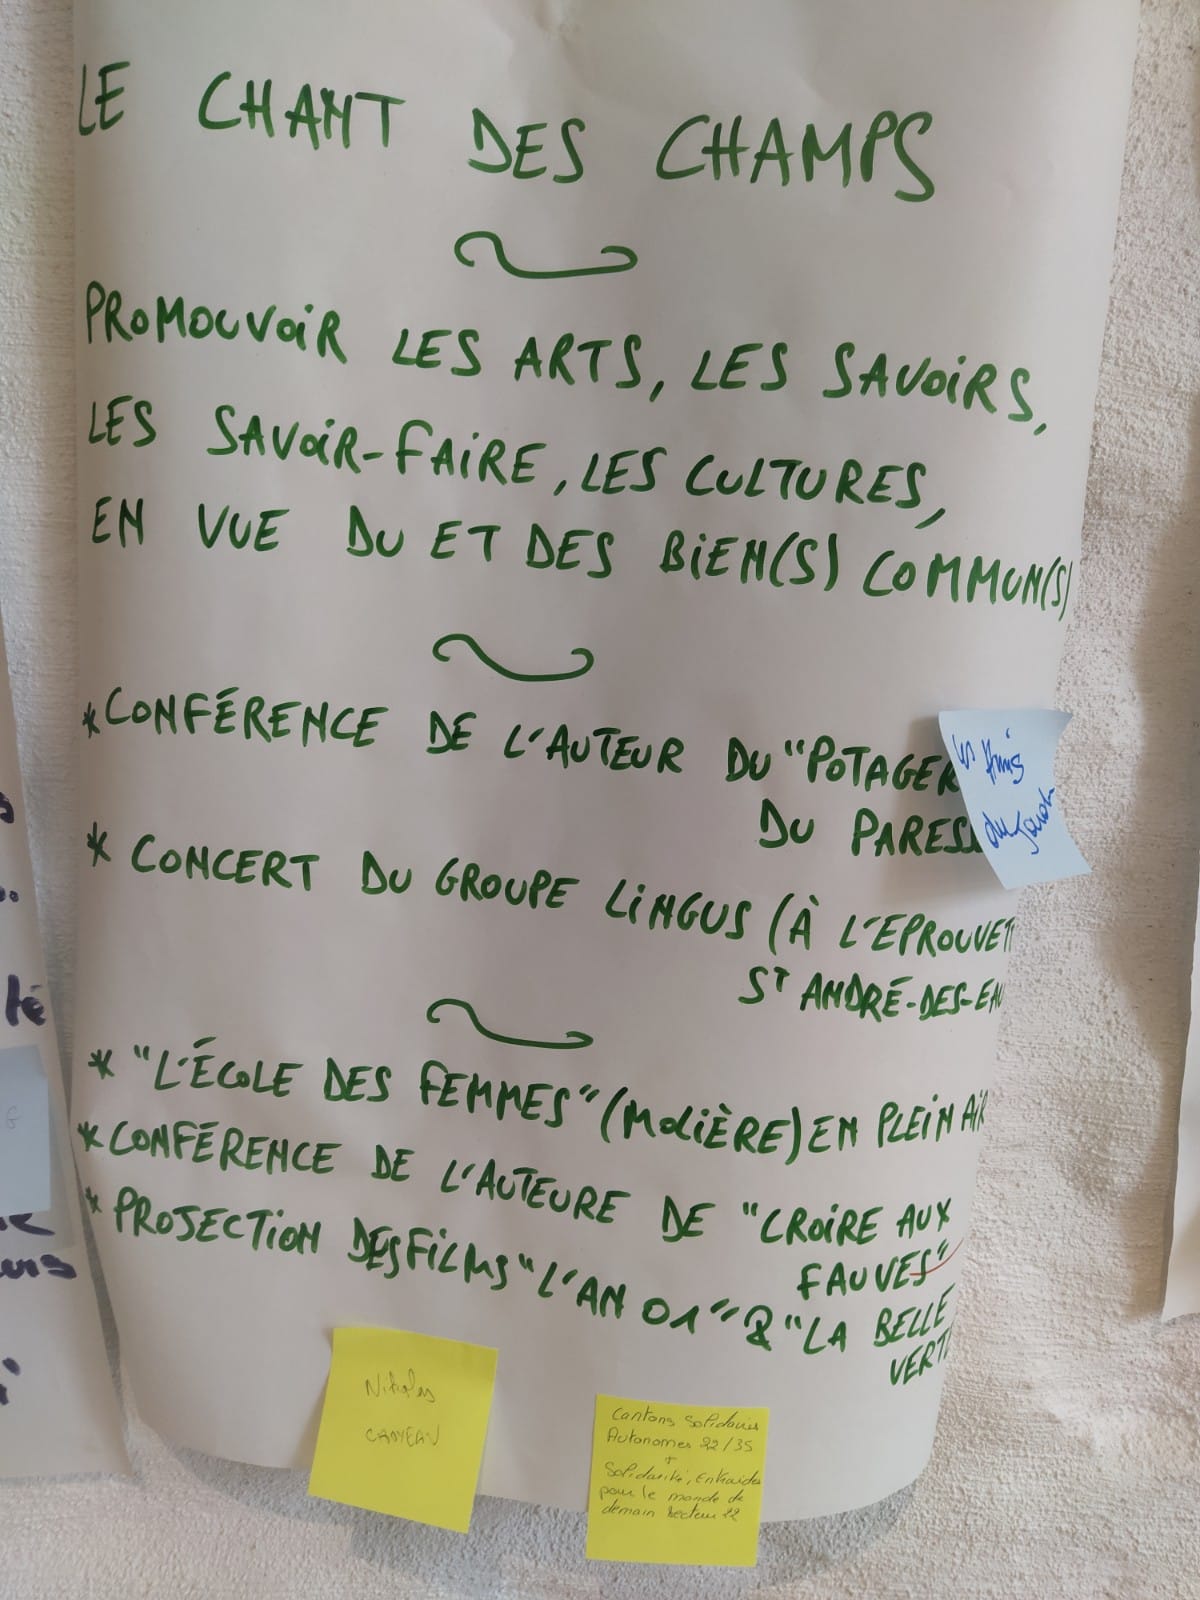 LE CHANT DES CHAMPS
PROMOUVOIR LES ARTS, LES SAVOIRS,
LES SAVOIR-FAIRE, LES CULTURES,
EN VUE DU ET DES BIEN(S) COMMUN(S)
* CONFÉRENCE DE L'AUTEUR DU "POTAGER
DU PARESS
* CONCERT DU GROUPE LINGUS (À L'EPROUVET
ST ANDRÉ-DES-EAU
* "L'ÉCOLE DES FEMMES" (MOLIÈRE) EN PLEIN AIR
* CONFÉRENCE DE L'AUTEURE DE "CROIRE AUX
FAUVES"
* PROJECTION DES FILMS "L'AN 01" & "LA BELLE
VERTE
du
Nikolas
Cantons Solidaires
Autonomes 22/35
+
Solidarité, Entraides
pour le monde de
demain Secteur 22
té